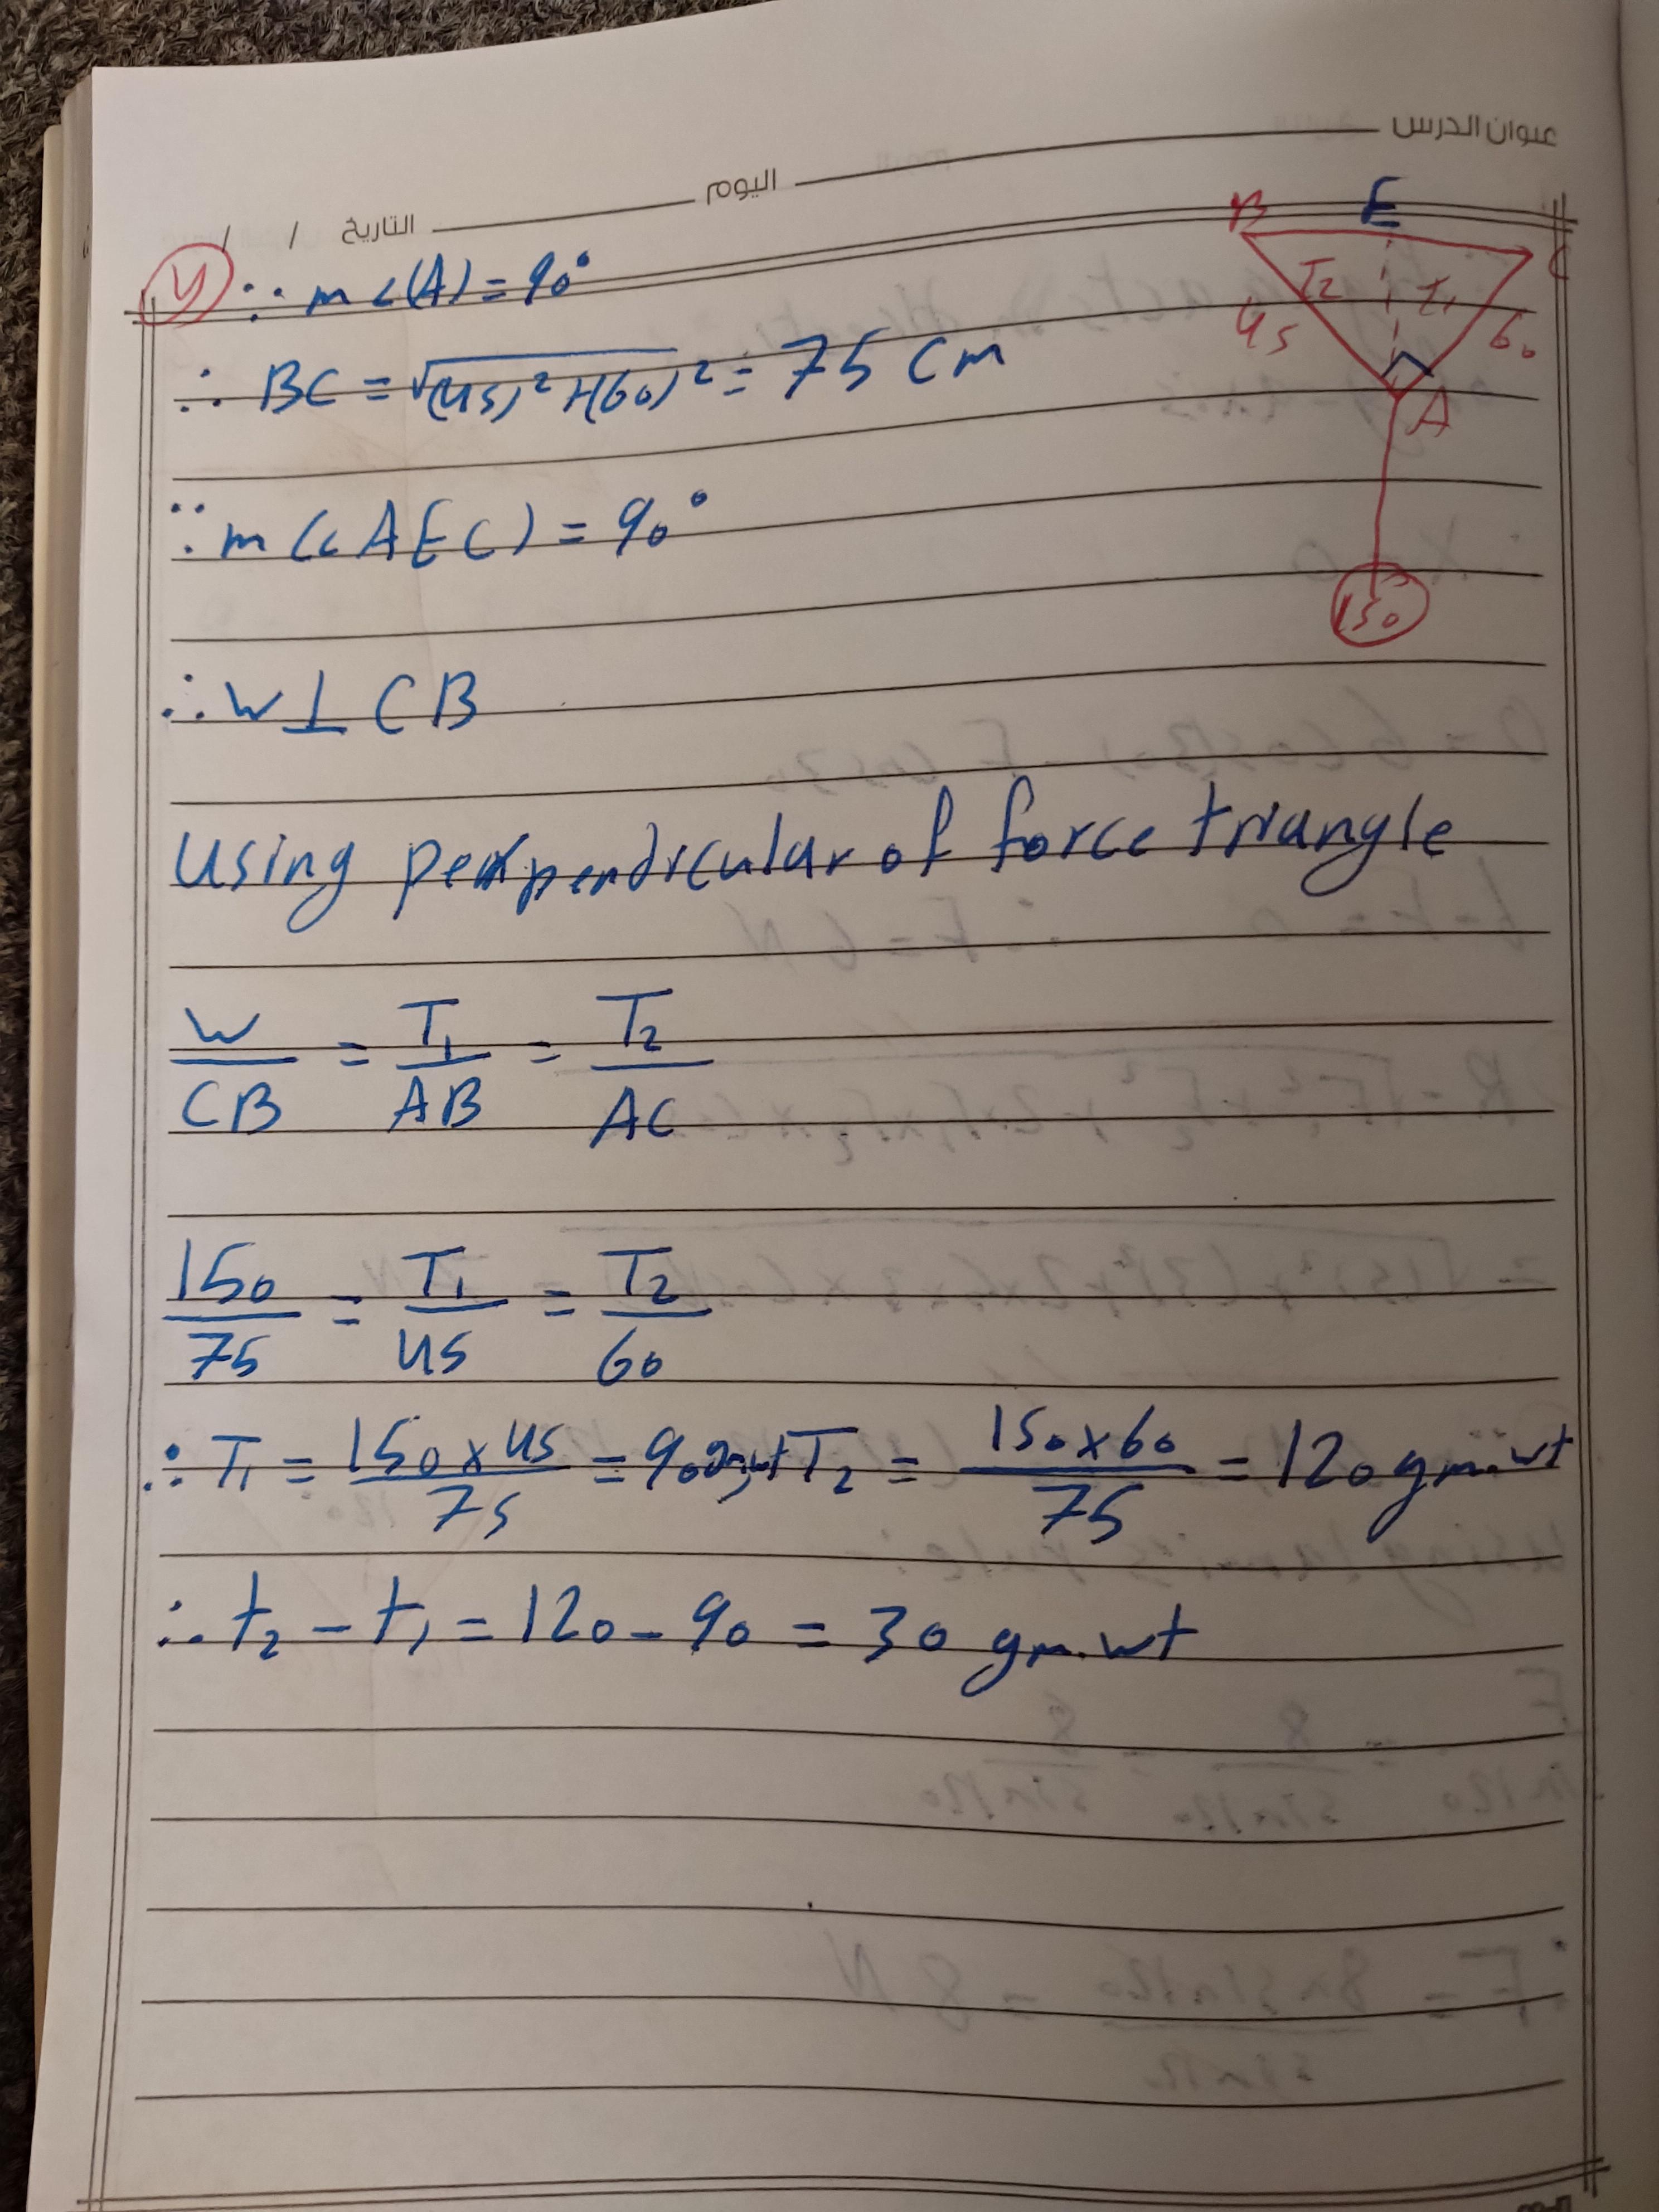 عنوان الدرس
اليوم
التاريخ / /
B E C
T2 t1
45 60
A
150
4 ∵ m<(A) = 90°
∴ BC = √(45)² + (60)² = 75 cm
∵ m(<AEC) = 90°
∴ W ⊥ CB
Using perpendicular of force triangle
W/CB = T1/AB = T2/AC
150/75 = T1/45 = T2/60
∴ T1 = 150 x 45/75 = 90 gm.wt T2 = 150 x 60/75 = 120 gm.wt
∴ t2 - t1 = 120 - 90 = 30 gm.wt